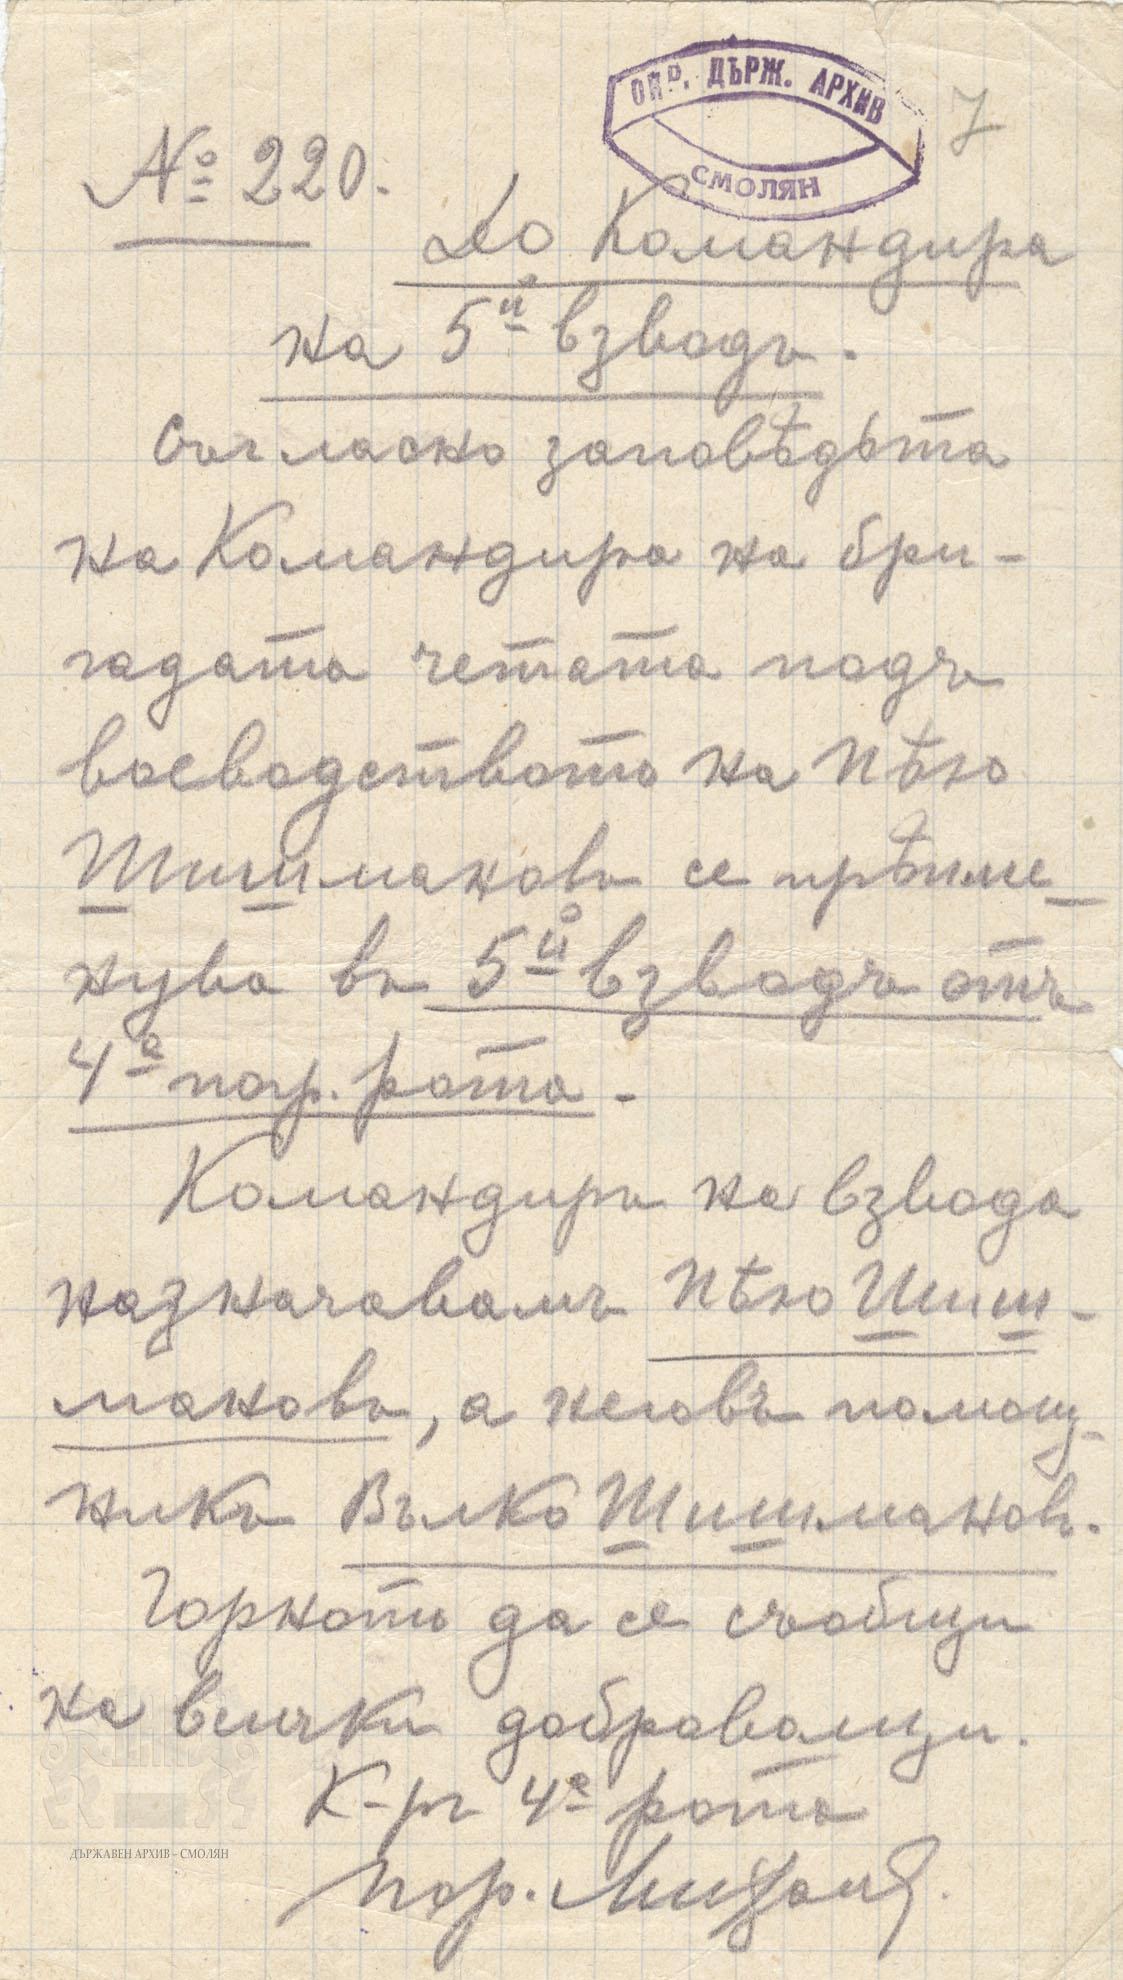 ОКР. ДЪРЖ. АРХИВ
СМОЛЯН
7
№ 220.
До Командира
на 5й взводъ.
Съгласно заповѣдьта
на Командира на бри-
гадата четата подъ
воеводството на Пѣю
Шишмановъ се прѣиме-
нува въ 5й взводъ отъ
4а погр. рота.
Командиръ на взвода
назначавамъ Пѣю Шиш-
мановъ, а неговъ помощ-
никъ Вълко Шишмановъ.
Горното да се съобщи
на всички доброволци.
К-ръ 4а рота
Пор.
ДЪРЖАВЕН АРХИВ – СМОЛЯН